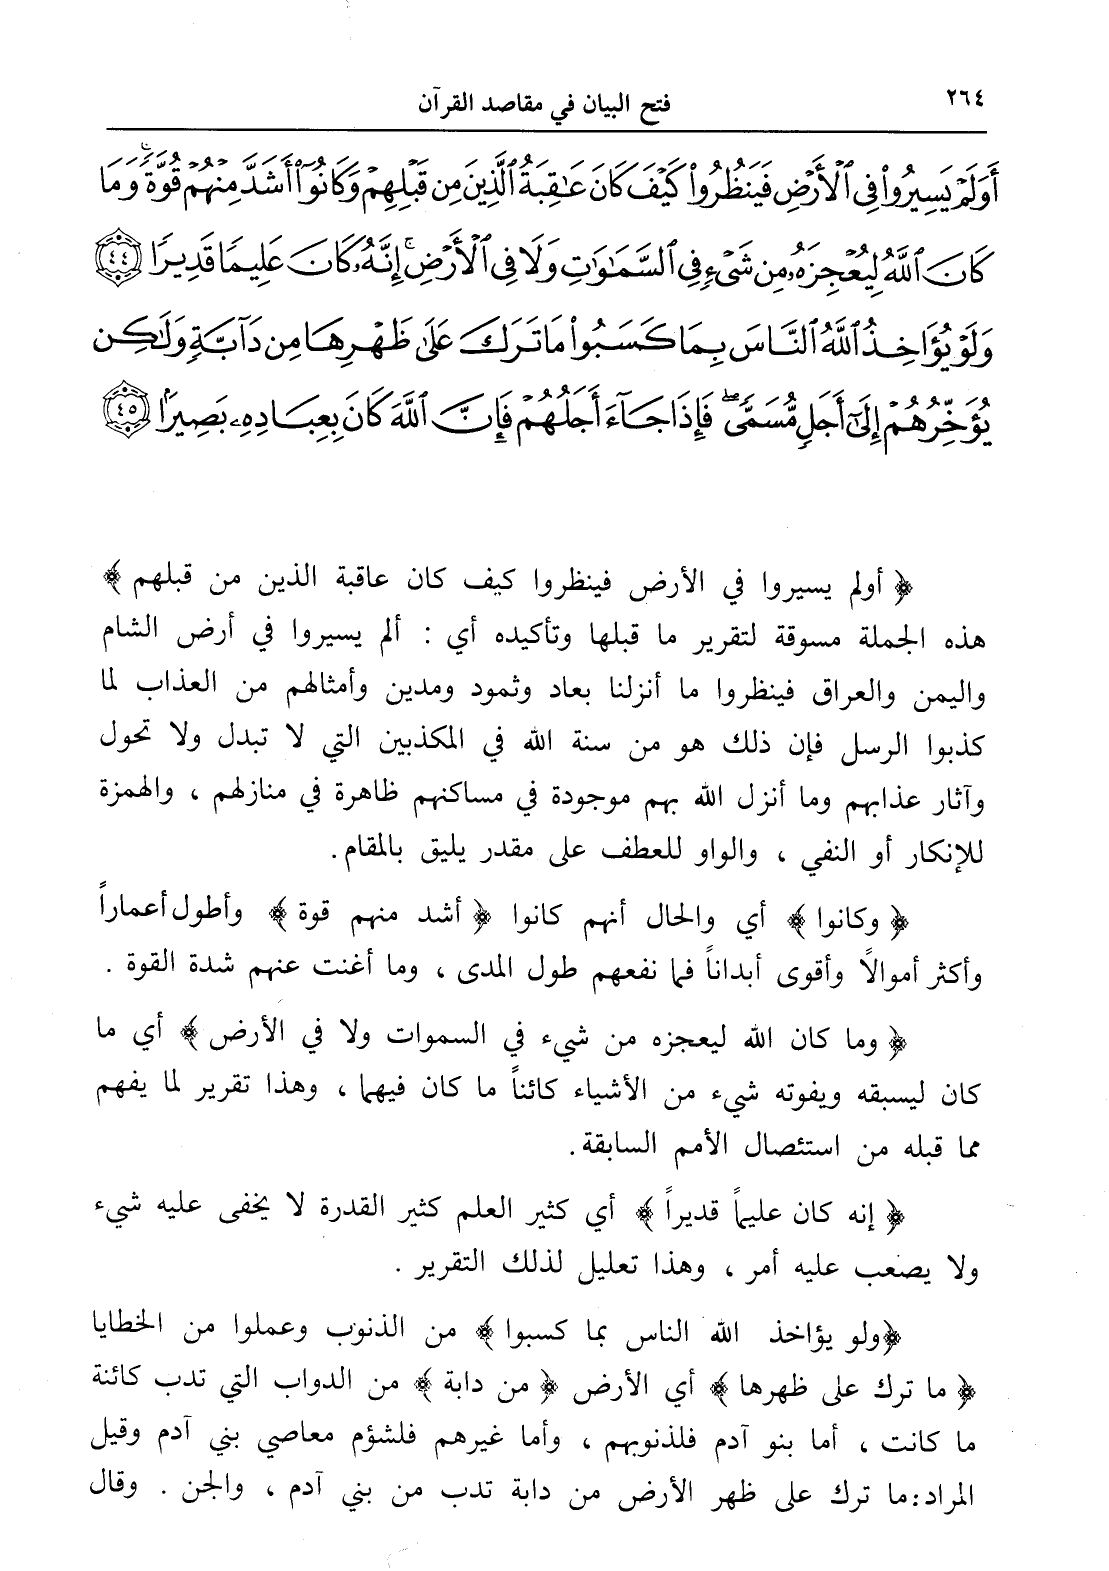 ٢٦٤
فتح البيان في مقاصد القرآن
أَوَلَمْ يَسِيرُوا۟ فِى ٱلْأَرْضِ فَيَنظُرُوا۟ كَيْفَ كَانَ عَـٰقِبَةُ ٱلَّذِينَ مِن قَبْلِهِمْ وَكَانُوٓا۟ أَشَدَّ مِنْهُمْ قُوَّةً ۚ وَمَا
كَانَ ٱللَّهُ لِيُعْجِزَهُۥ مِن شَىْءٍ فِى ٱلسَّمَـٰوَٰتِ وَلَا فِى ٱلْأَرْضِ ۚ إِنَّهُۥ كَانَ عَلِيمًا قَدِيرًا ٤٤
وَلَوْ يُؤَاخِذُ ٱللَّهُ ٱلنَّاسَ بِمَا كَسَبُوا۟ مَا تَرَكَ عَلَىٰ ظَهْرِهَا مِن دَآبَّةٍ وَلَـٰكِن
يُؤَخِّرُهُمْ إِلَىٰٓ أَجَلٍ مُّسَمًّى ۖ فَإِذَا جَآءَ أَجَلُهُمْ فَإِنَّ ٱللَّهَ كَانَ بِعِبَادِهِۦ بَصِيرًۢا ٤٥
﴿ أولم يسيروا في الأرض فينظروا كيف كان عاقبة الذين من قبلهم ﴾
هذه الجملة مسوقة لتقرير ما قبلها وتأكيده أي : ألم يسيروا في أرض الشام
واليمن والعراق فينظروا ما أنزلنا بعاد وثمود ومدين وأمثالهم من العذاب لما
كذبوا الرسل فإن ذلك هو من سنة الله في المكذبين التي لا تبدل ولا تحول
وآثار عذابهم وما أنزل الله بهم موجودة في مساكنهم ظاهرة في منازلهم ، والهمزة
للإنكار أو النفي ، والواو للعطف على مقدر يليق بالمقام.
﴿ وكانوا ﴾ أي والحال أنهم كانوا ﴿ أشد منهم قوة ﴾ وأطول أعماراً
وأكثر أموالاً وأقوى أبداناً فما نفعهم طول المدى ، وما أغنت عنهم شدة القوة .
﴿ وما كان الله ليعجزه من شيء في السموات ولا في الأرض ﴾ أي ما
كان ليسبقه ويفوته شيء من الأشياء كائناً ما كان فيهما ، وهذا تقرير لما يفهم
مما قبله من استئصال الأمم السابقة.
﴿ إنه كان عليماً قديراً ﴾ أي كثير العلم كثير القدرة لا يخفى عليه شيء
ولا يصعب عليه أمر ، وهذا تعليل لذلك التقرير .
﴿ولو يؤاخذ الله الناس بما كسبوا﴾ من الذنوب وعملوا من الخطايا
﴿ ما ترك على ظهرها ﴾ أي الأرض ﴿ من دابة ﴾ من الدواب التي تدب كائنة
ما كانت ، أما بنو آدم فلذنوبهم ، وأما غيرهم فلشؤم معاصي بني آدم وقيل
المراد:ما ترك على ظهر الأرض من دابة تدب من بني آدم ، والجن . وقال